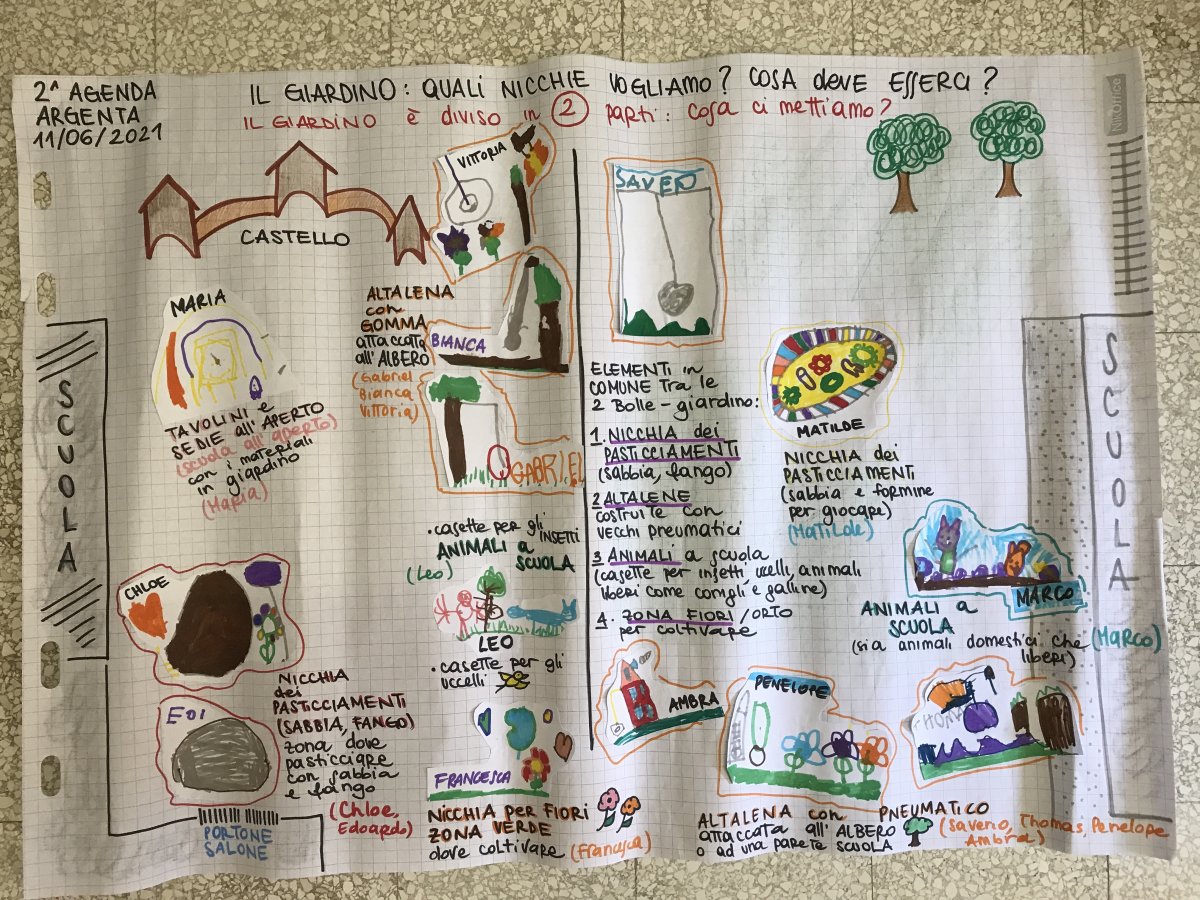 2ª AGENDA
ARGENTA
11/06/2021
IL GIARDINO: QUALI NICCHIE VOGLIAMO? COSA DEVE ESSERCI?
IL GIARDINO è diviso in 2 parti: cosa ci mettiamo?
CASTELLO
VITTORIA
MARIA
TAVOLINI e
SEDIE all'APERTO
(scuola all'aperto)
con i materiali
in giardino
(Maria)
ALTALENA
con
GOMMA
attaccata
all'ALBERO
(Gabriel
Bianca
Vittoria)
BIANCA
GABRIEL
SCUOLA
• casette per gli
INSETTI
ANIMALI a
SCUOLA
(Leo)
LEO
• casette per gli
uccelli
CHLOE
EDI
NICCHIA
dei
PASTICCIAMENTI
(SABBIA, FANGO)
zona dove
pasticciare
con sabbia
e fango
(Chloe,
Edoardo)
PORTONE
SALONE
FRANCESCA
NICCHIA PER FIORI
ZONA VERDE
dove coltivare (Francesca)
SAVERIO
ELEMENTI in
COMUNE tra le
2 Bolle-giardino:
1. NICCHIA dei
PASTICCIAMENTI
(sabbia, fango)
2 ALTALENE
costruite con
vecchi pneumatici
3 ANIMALI a scuola
(casette per insetti, uccelli, animali
liberi come conigli e galline)
4. ZONA FIORI/ORTO
per coltivare
MATILDE
NICCHIA dei
PASTICCIAMENTI
(sabbia e formine
per giocare)
(Matilde)
MARCO
ANIMALI a
SCUOLA
(sia animali domestici che
liberi)
(Marco)
SCUOLA
AMBRA
PENELOPE
THOMA
ALTALENA con PNEUMATICO
attaccata all'ALBERO
o ad una parete SCUOLA
(Saverio, Thomas, Penelope
Ambra)